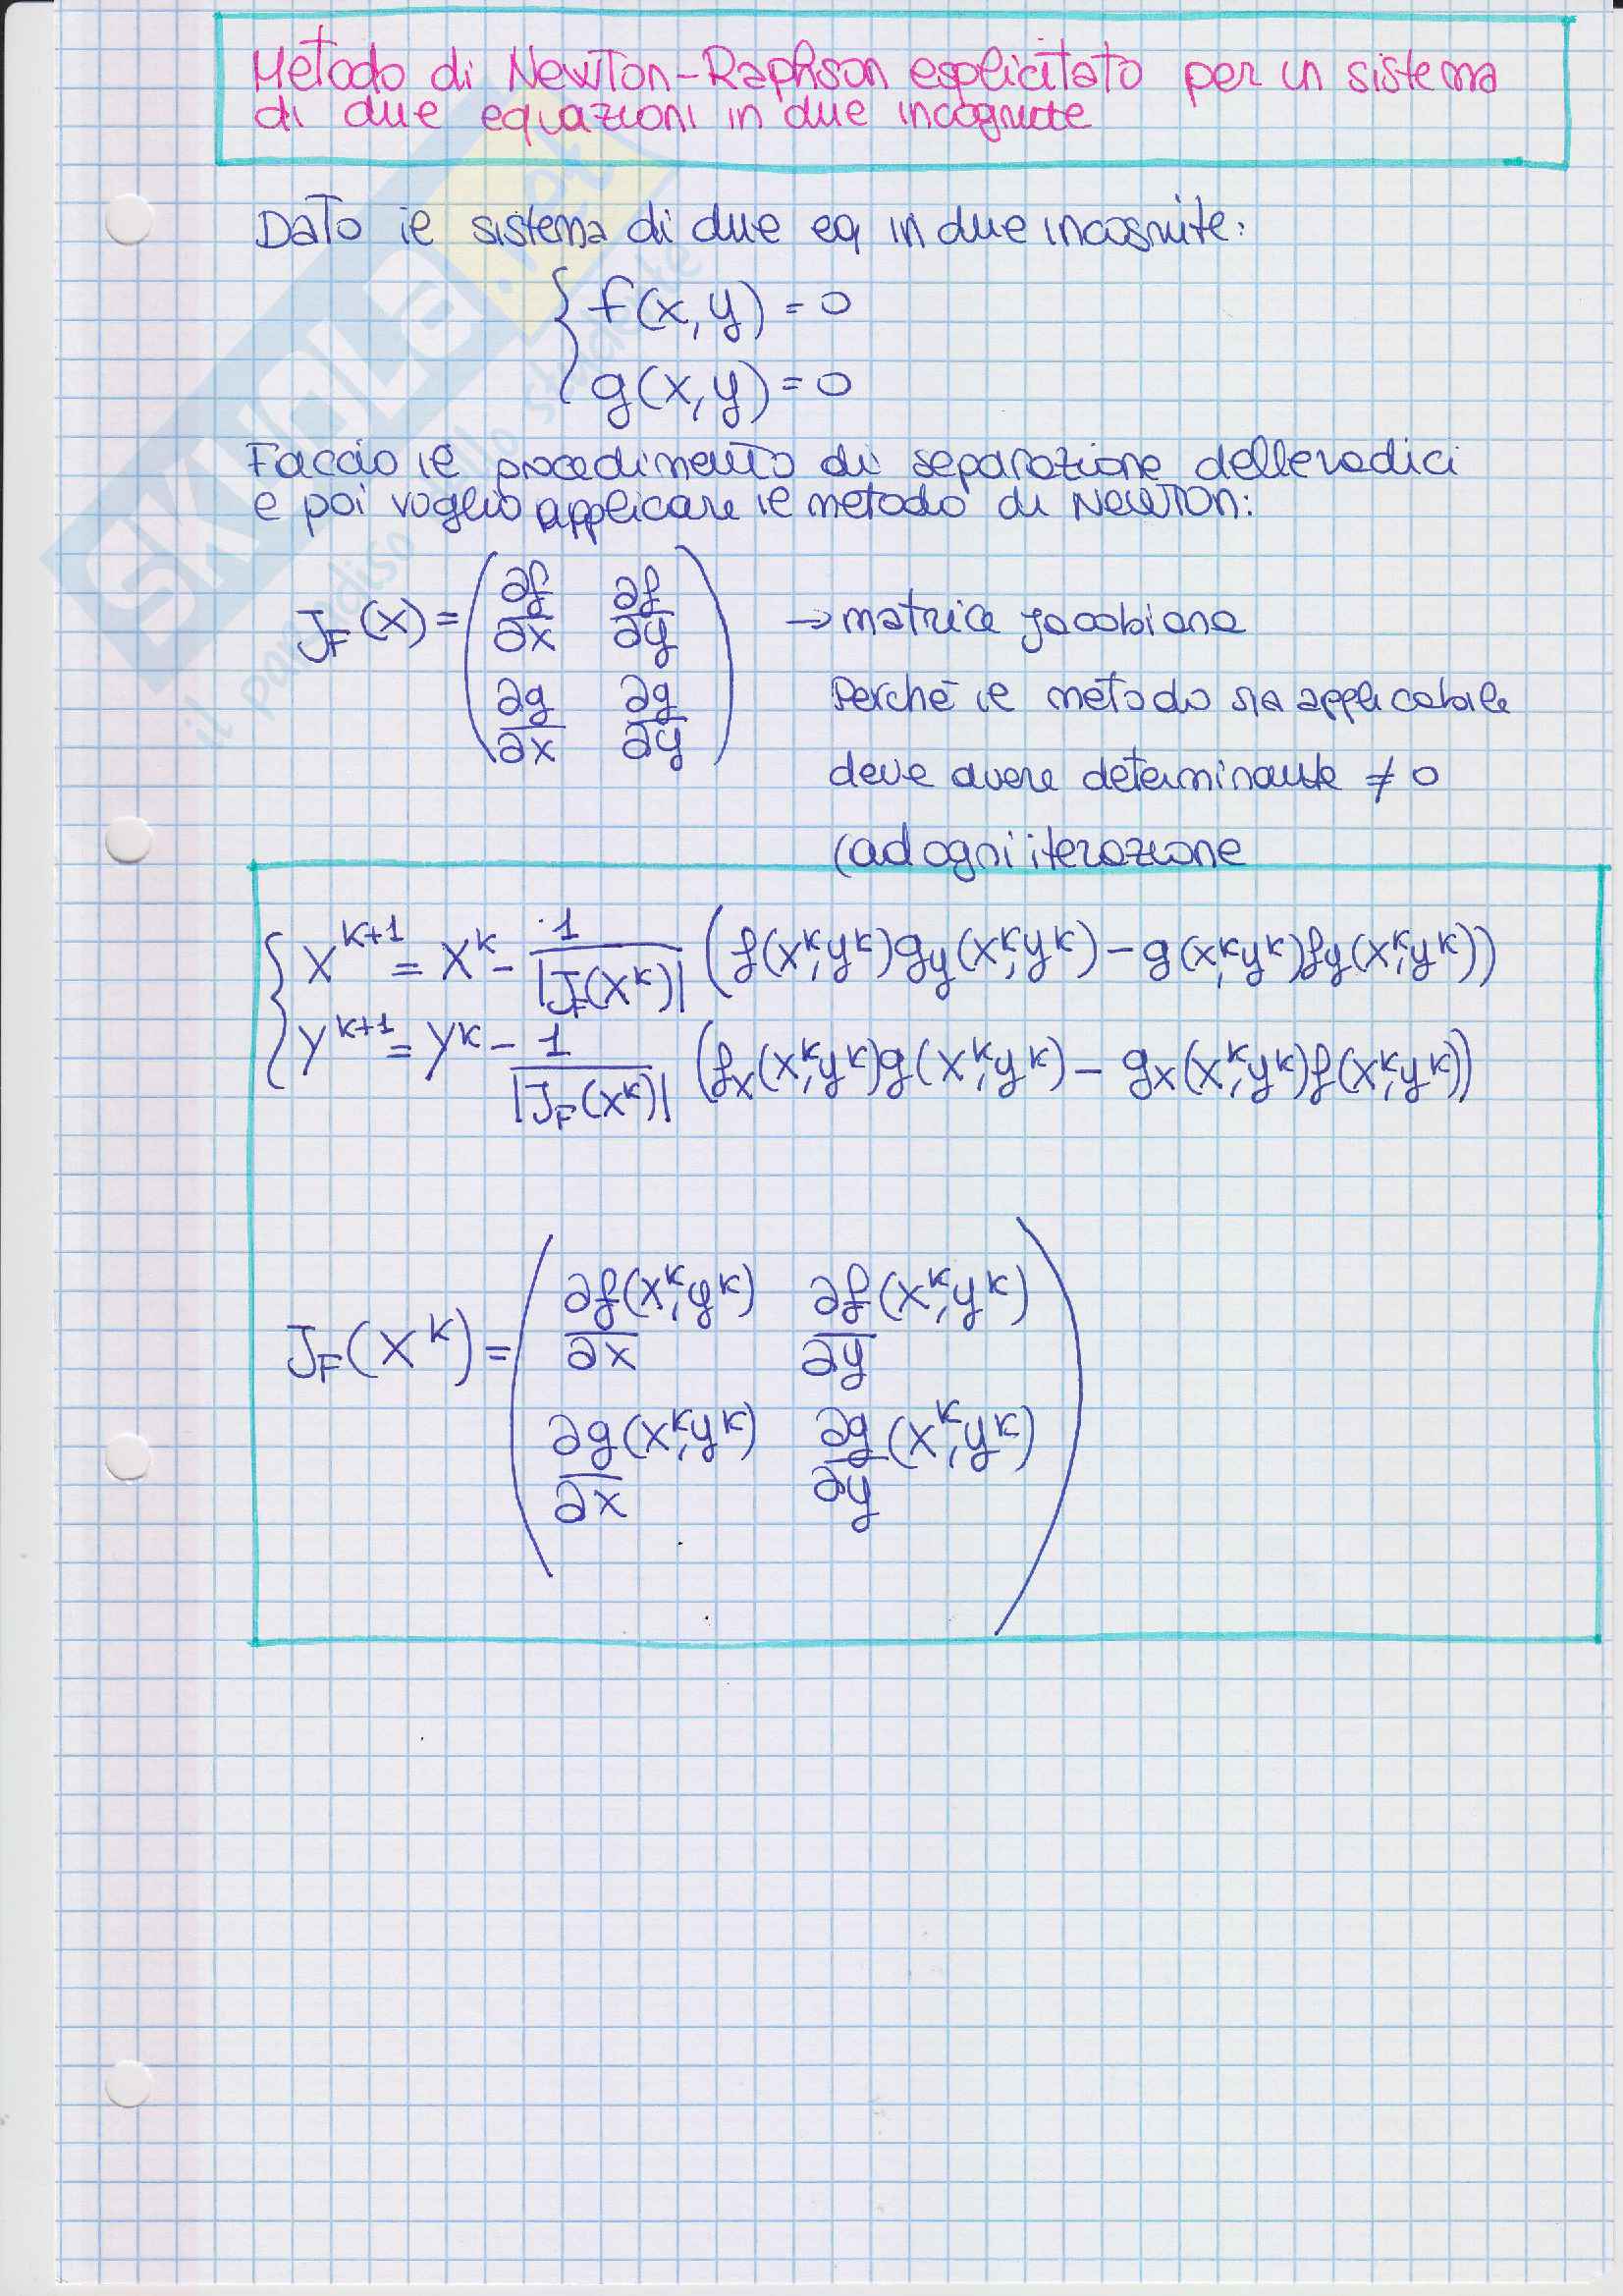 Metodo di Newton-Raphson esplicitato per un sistema
di due equazioni in due incognite
Dato il sistema di due eq in due incognite:
{ f(x,y) = 0
{ g(x,y) = 0
Faccio il procedimento di separazione delle radici
e poi voglio applicare il metodo di Newton:
J_F(x) = ( ∂f/∂x ∂f/∂y ; ∂g/∂x ∂g/∂y ) → matrice Jacobiana
Perché il metodo sia applicabile
deve avere determinante ≠ 0
(ad ogni iterazione
{ x^{k+1} = x^k - 1/|J_F(x^k)| (f(x^k,y^k)g_y(x^k,y^k) - g(x^k,y^k)f_y(x^k,y^k))
{ y^{k+1} = y^k - 1/|J_F(x^k)| (f_x(x^k,y^k)g(x^k,y^k) - g_x(x^k,y^k)f(x^k,y^k))
J_F(x^k) = ( ∂f/∂x(x^k,y^k) ∂f/∂y(x^k,y^k) ; ∂g/∂x(x^k,y^k) ∂g/∂y(x^k,y^k) )
SKUOLA.net
il paradiso dello studente